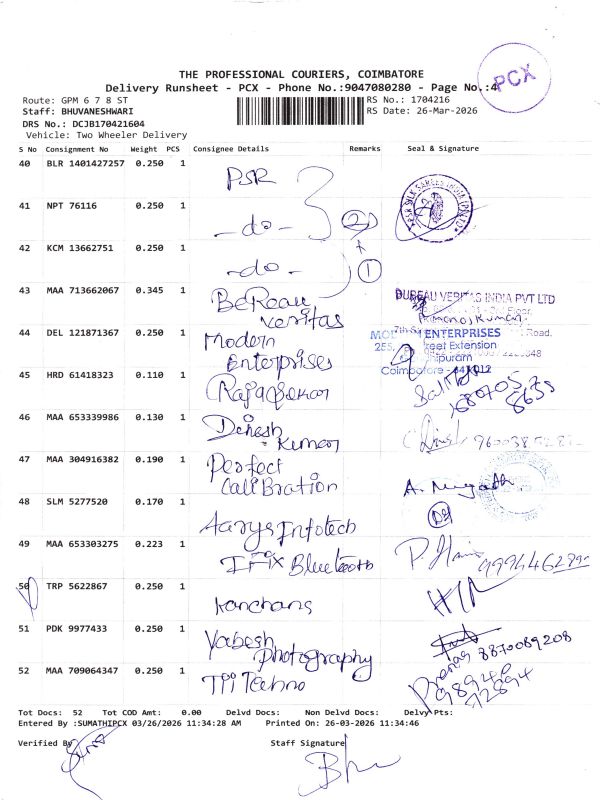 THE PROFESSIONAL COURIERS, COIMBATORE
Delivery Runsheet - PCX - Phone No.:9047080280 - Page No.:4
PCX
Route: GPM 6 7 8 ST
RS No.: 1704216
Staff: BHUVANESHWARI
RS Date: 26-Mar-2026
DRS No.: DCJB170421604
Vehicle: Two Wheeler Delivery
S No Consignment No Weight PCS Consignee Details Remarks Seal & Signature
40 BLR 1401427257 0.250 1
PSR
41 NPT 76116 0.250 1
-do- 2
42 KCM 13662751 0.250 1
-do- 1
43 MAA 713662067 0.345 1
BeReau
veritas
BUREAU VERITAS INDIA PVT LTD
44 DEL 121871367 0.250 1
Modern
Enterprises
ENTERPRISES
Road,
255,
Extension
Coimbatore
45 HRD 61418323 0.110 1
Rajasekar
46 MAA 653339986 0.130 1
Dinesh
Kumar
47 MAA 304916382 0.190 1
Perfect
CaliBration
48 SLM 5277520 0.170 1
Aarys Infotech
49 MAA 653303275 0.223 1
Bluetooth
50 TRP 5622867 0.250 1
kanchans
51 PDK 9977433 0.250 1
Yabesh
photography
8870089208
52 MAA 709064347 0.250 1
TPi Techno
Tot Docs: 52 Tot COD Amt: 0.00 Delvd Docs: Non Delvd Docs: Delvy Pts:
Entered By :SUMATHIPCX 03/26/2026 11:34:28 AM Printed On: 26-03-2026 11:34:46
Verified By
Staff Signature